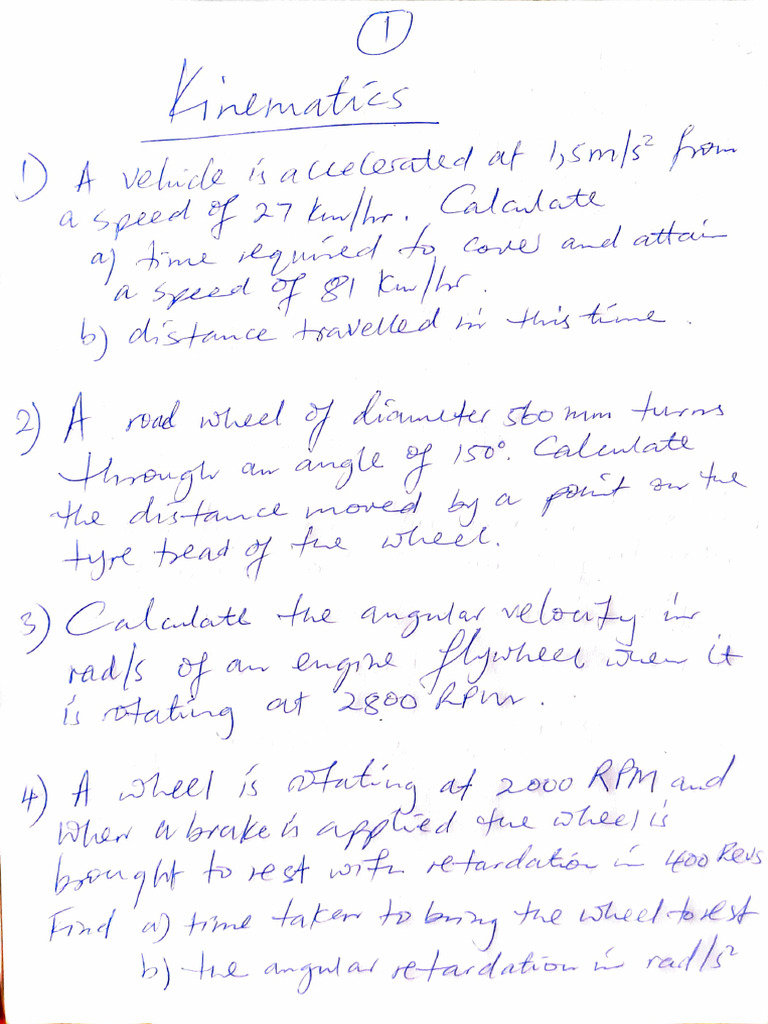 1
Kinematics
1) A vehicle is accelerated at 1,5m/s² from
a speed of 27 km/hr. Calculate
a) time required to cover and attain
a speed of 81 Km/hr.
b) distance travelled in this time.
2) A road wheel of diameter 560 mm turns
through an angle of 150°. Calculate
the distance moved by a point on the
tyre tread of the wheel.
3) Calculate the angular velocity in
rad/s of an engine flywheel when it
is rotating at 2800 RPM.
4) A wheel is rotating at 2000 RPM and
when a brake is applied the wheel is
brought to rest with retardation in 400 Revs
Find a) time taken to bring the wheel to rest
b) the angular retardation in rad/s²